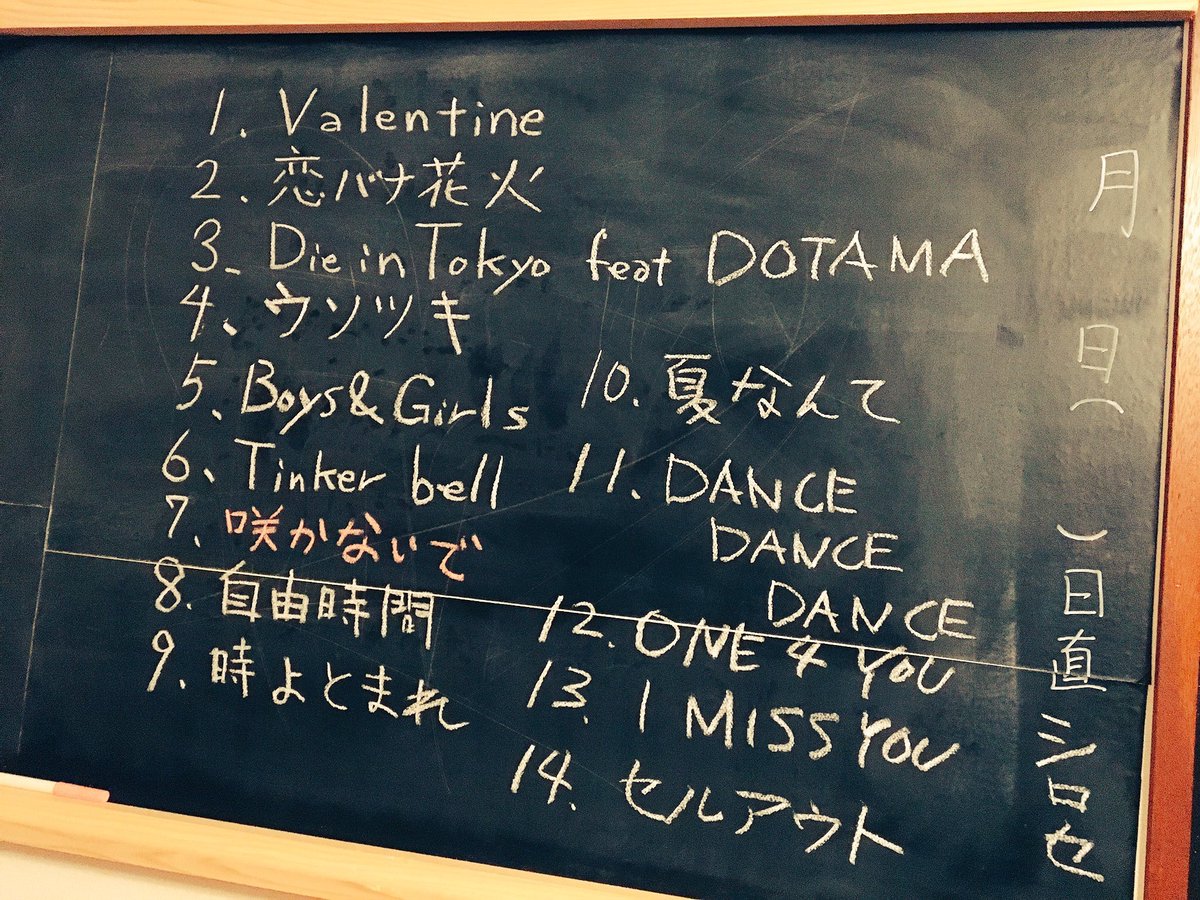 1. Valentine
2. 恋バナ花火
3、Die in Tokyo feat DOTAMA
4、ウソツキ
5、Boys&Girls
6、Tinker bell
7、咲かないで
8. 自由時間
9、時よとまれ
10. 夏なんて
11. DANCE
DANCE
DANCE
12. ONE 4 YOU
13. I MISS YOU
14. セルアウト
月 日( )日直 シロセ